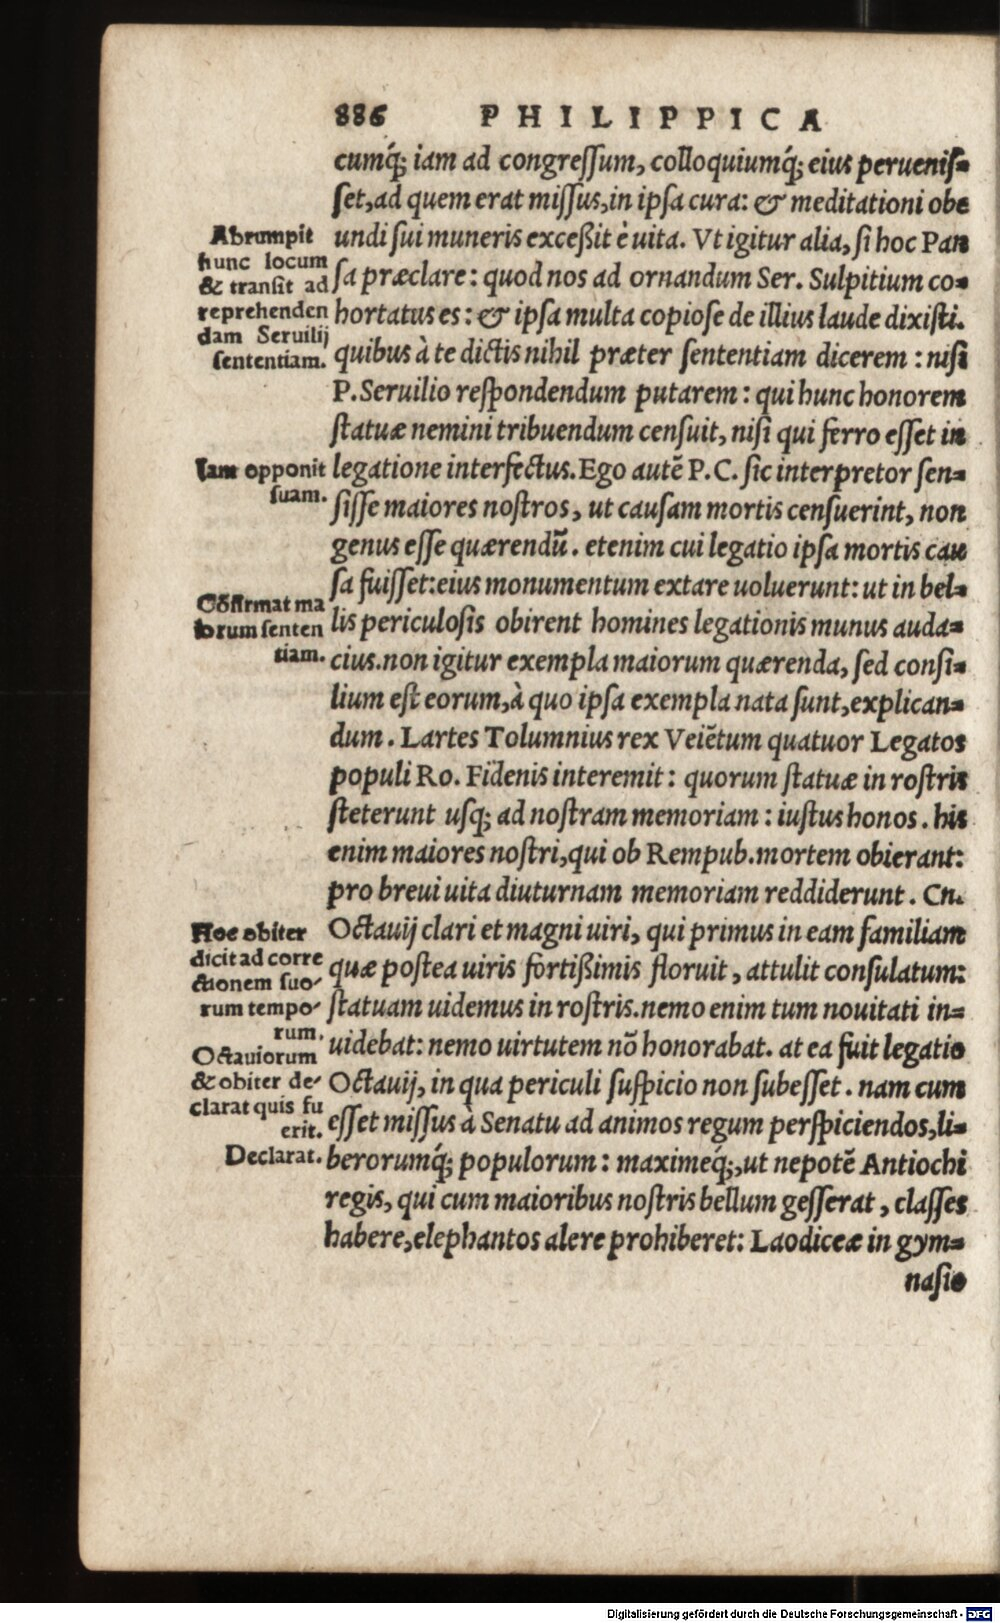 886 PHILIPPICA
cumq́; iam ad congreſſum, colloquiumq́; eius perueniſ-
ſet, ad quem erat miſſus, in ipſa cura: & meditationi obe
undi ſui muneris exceßit è uita. Vt igitur alia, ſi hoc Pan
ſa præclare: quod nos ad ornandum Ser. Sulpitium co-
hortatus es: & ipſa multa copioſe de illius laude dixiſti.
quibus à te dictis nihil præter ſententiam dicerem: niſi
P. Seruilio reſpondendum putarem: qui hunc honorem
ſtatuæ nemini tribuendum cenſuit, niſi qui ferro eſſet in
legatione interfectus. Ego autẽ P. C. ſic interpretor ſen-
ſiſſe maiores noſtros, ut cauſam mortis cenſuerint, non
genus eſſe quærendũ. etenim cui legatio ipſa mortis cau
ſa fuiſſet: eius monumentum extare uoluerunt: ut in bel-
lis periculoſis obirent homines legationis munus auda-
cius. non igitur exempla maiorum quærenda, ſed conſi-
lium eſt eorum, à quo ipſa exempla nata ſunt, explican-
dum. Lartes Tolumnius rex Veiẽtum quatuor Legatos
populi Ro. Fidenis interemit: quorum ſtatuæ in roſtris
ſteterunt uſq; ad noſtram memoriam: iuſtus honos. his
enim maiores noſtri, qui ob Rempub. mortem obierant:
pro breui uita diuturnam memoriam reddiderunt. Cn.
Octauij clari et magni uiri, qui primus in eam familiam
quæ poſtea uiris fortißimis floruit, attulit conſulatum:
ſtatuam uidemus in roſtris. nemo enim tum nouitati in-
uidebat: nemo uirtutem nõ honorabat. at ea fuit legatio
Octauij, in qua periculi ſuſpicio non ſubeſſet. nam cum
eſſet miſſus à Senatu ad animos regum perſpiciendos, li-
berorumq́; populorum: maximeq́;, ut nepotẽ Antiochi
regis, qui cum maioribus noſtris bellum geſſerat, claſſes
habere, elephantos alere prohiberet: Laodiceæ in gym-
naſio
Abrumpit
hunc locum
& tranſit ad
reprehenden
dam Seruilij
ſententiam.
Iam opponit
ſuam.
Cõfirmat ma
iorum ſenten
tiam.
Hoc obiter
dicit ad corre
ctionem ſuo-
rum tempo-
rum.
Octauiorum
& obiter de-
clarat quis fu
erit.
Declarat.
Digitalisierung gefördert durch die Deutsche Forschungsgemeinschaft - DFG